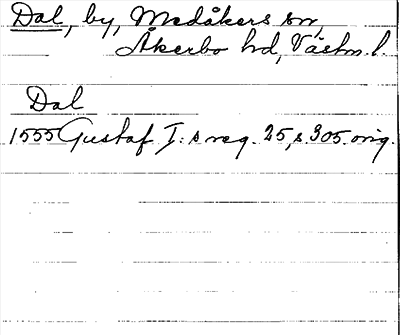 Dal, by, Medåkers sn,
Åkerbo hd, Västm. l.
Dal
1555 Gustaf I:s reg. 25, s 305. orig.